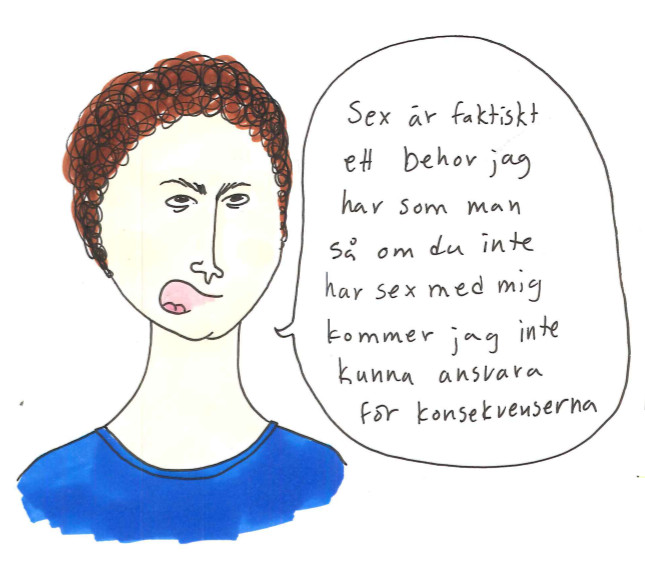 Sex är faktiskt
ett behov jag
har som man
så om du inte
har sex med mig
kommer jag inte
kunna ansvara
för konsekvenserna